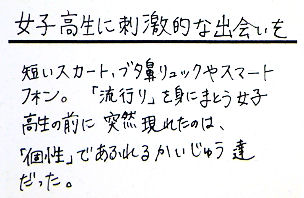 女子高生に刺激的な出会いを
短いスカート、ブタ鼻リュックやスマート
フォン。「流行り」を身にまとう女子
高生の前に突然現れたのは、
「個性」であふれるかいじゅう達
だった。